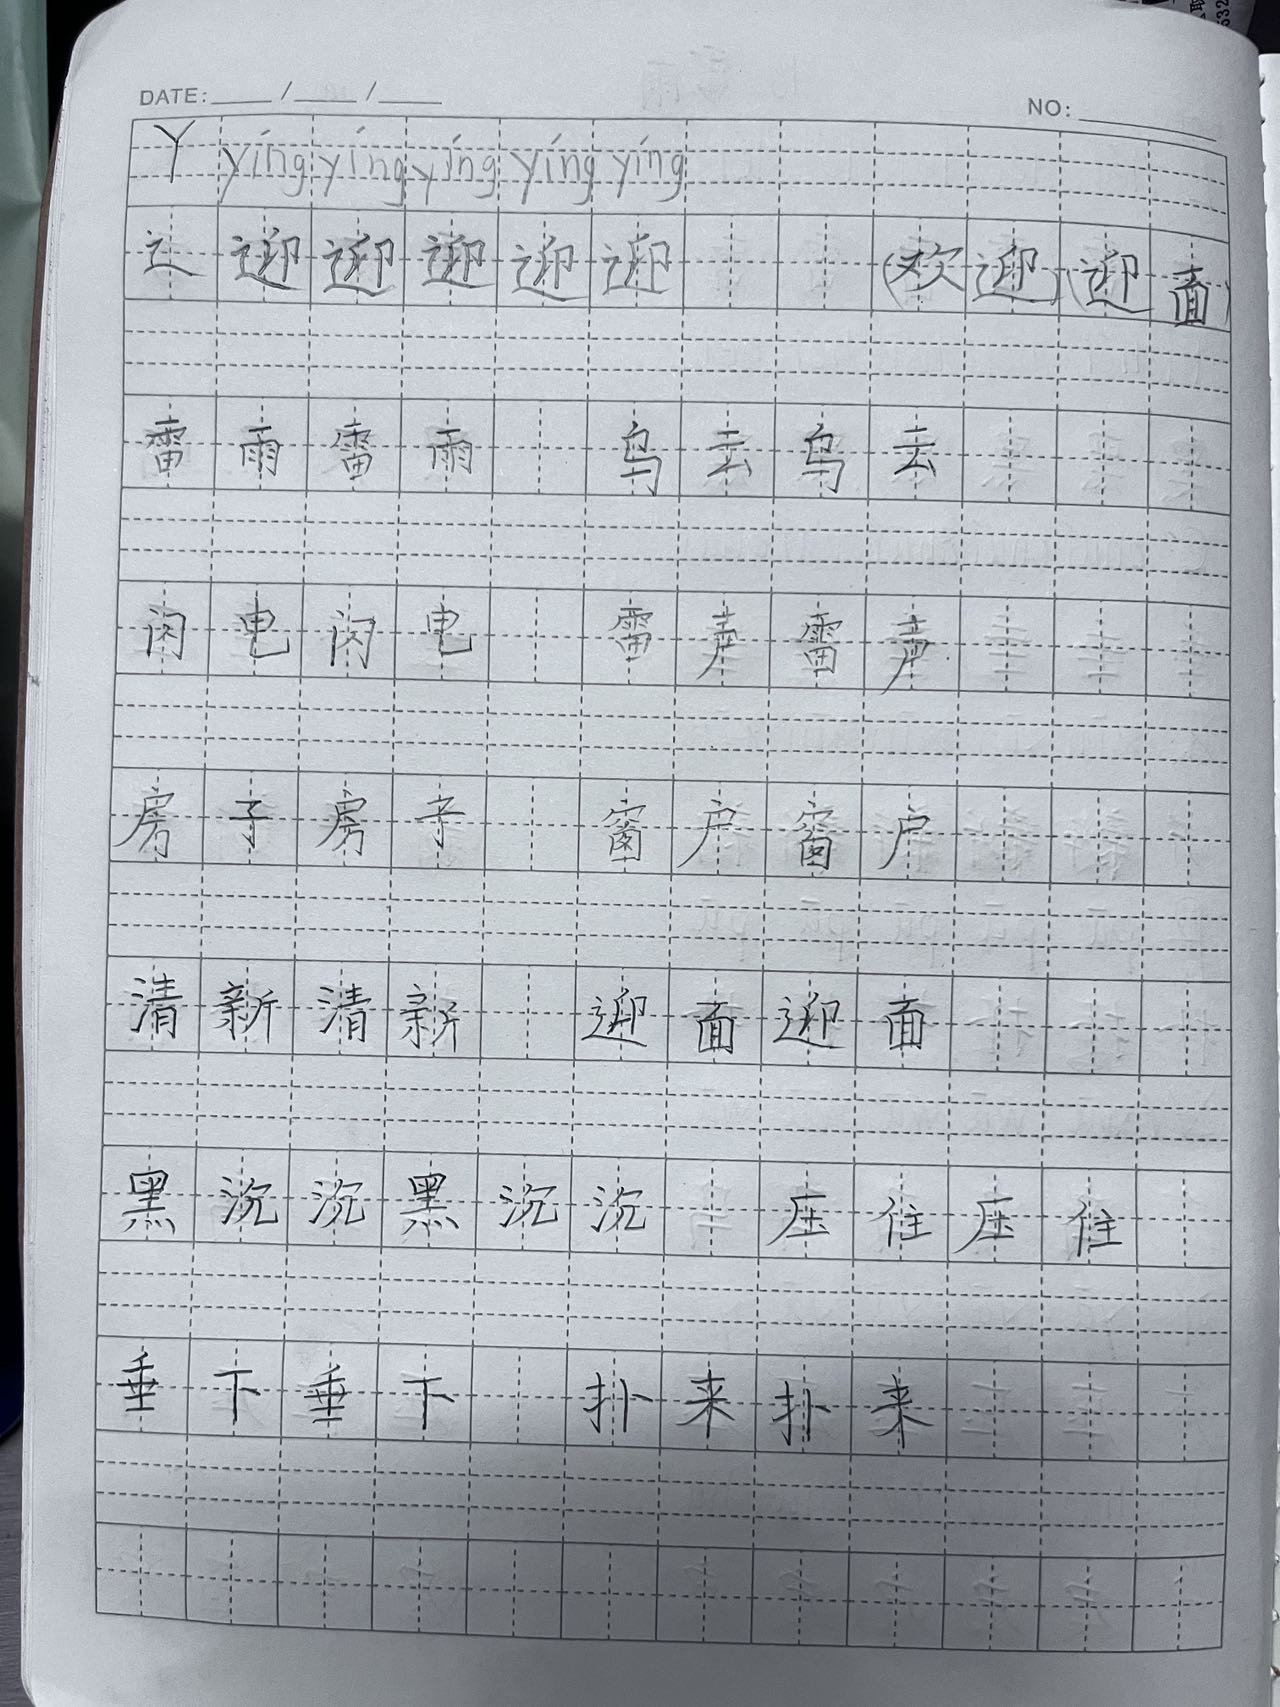 DATE: / / NO:
Y yíng yíng yíng yíng yíng
辶 迎 迎 迎 迎 迎 (欢 迎) (迎 面)
雷 雨 雷 雨 乌 云 乌 云
闪 电 闪 电 雷 声 雷 声
房 子 房 子 窗 户 窗 户
清 新 清 新 迎 面 迎 面
黑 沉 沉 黑 沉 沉 压 住 压 住
垂 下 垂 下 扑 来 扑 来